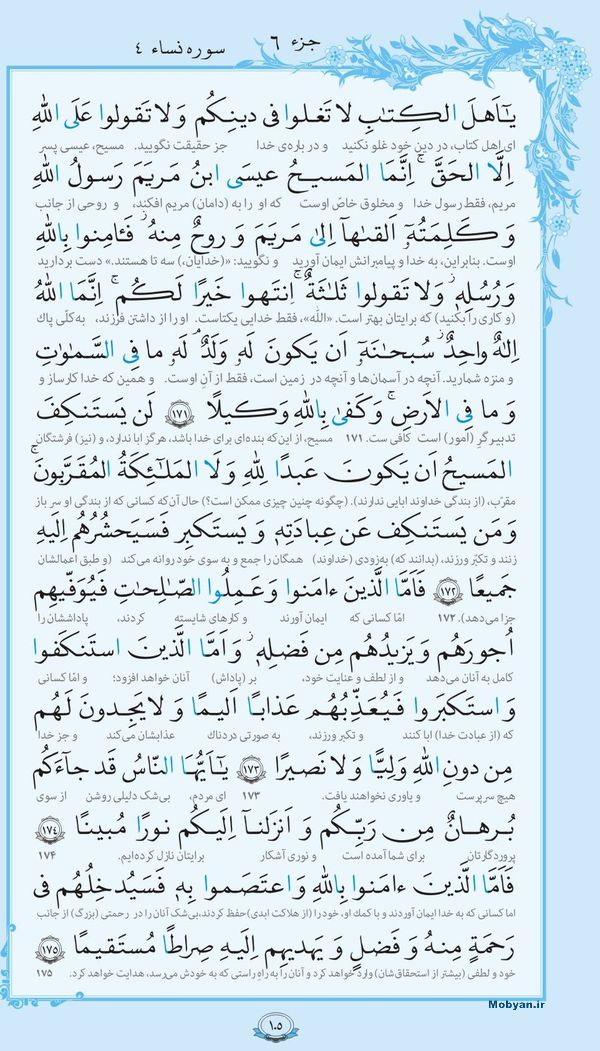 جزء ۶
سوره نساء ۴
يٰٓاَهلَ الكِتٰبِ لا تَغلوا فى دينِكُم وَ لا تَقولوا عَلَى اللّٰهِ
ای اهل کتاب، در دین خود غلو نکنید و در باره‌ی خدا جز حقیقت نگویید. مسیح، عیسی پسر
اِلَّا الحَقَّ ۚ اِنَّمَا المَسيحُ عيسَى ابنُ مَريَمَ رَسولُ اللّٰهِ
مریم، فقط رسول خدا و مخلوق خاصّ اوست که او را به (دامان) مریم افکند، و روحی از جانب
وَ كَلِمَتُهٗٓ اَلقٰىهآ اِلىٰ مَريَمَ وَ روحٌ مِنهُ ۖ فَـٔامِنوا بِاللّٰهِ
اوست. بنابراین، به خدا و پیامبرانش ایمان آورید و نگویید: «(خدایان،) سه تا هستند.» دست بردارید
وَ رُسُلِهٖ ۖ وَ لا تَقولوا ثَلٰثَةٌ ۚ اِنتَهوا خَيرًا لَكُم ۚ اِنَّمَا اللّٰهُ
(و کاری را بکنید) که برایتان بهتر است. «اللّه»، فقط خدایی یکتاست. او را از داشتن فرزند، به‌کلّی پاک
اِلٰهٌ واحِدٌ ۖ سُبحٰنَهٗٓ اَن يَكونَ لَهٗ وَلَدٌ ۘ لَهٗ ما فِى السَّمٰوٰتِ
و منزه شمارید. آنچه در آسمان‌ها و آنچه در زمین است، فقط از آنِ اوست. و همین که خدا کارساز و
وَ ما فِى الاَرضِ ۗ وَ كَفىٰ بِاللّٰهِ وَكيلًا ۱۷۱ لَن يَستَنكِفَ
تدبیرگر (امور) است کافی‌ست. ۱۷۱ مسیح، از این‌که بنده‌ای برای خدا باشد، هرگز ابا ندارد، و (نیز) فرشتگان
المَسيحُ اَن يَكونَ عَبدًا لِلّٰهِ وَ لَا المَلٰئِكَةُ المُقَرَّبونَ ۚ
مقرّب، (از بندگی خداوند ابایی ندارند). (چگونه چنین چیزی ممکن است؟) حال آن‌که کسانی که از بندگی او سر باز
وَ مَن يَستَنكِف عَن عِبادَتِهٖ وَ يَستَكبِر فَسَيَحشُرُهُم اِلَيهِ
زنند و تکبّر ورزند، (بدانند که) به‌زودی (خداوند) همگان را جمع و به سوی خود روانه می‌کند (و طبق اعمالشان
جَميعًا ۱۷۲ فَاَمَّا الَّذينَ ءامَنوا وَ عَمِلُوا الصّٰلِحٰتِ فَيُوَفّيهِم
جزا می‌دهد). ۱۷۲ امّا کسانی که ایمان آورند و کارهای شایسته کردند، پاداششان را
اُجورَهُم وَ يَزيدُهُم مِن فَضلِهٖ ۖ وَ اَمَّا الَّذينَ استَنكَفوا
کامل به آنان می‌دهد و از لطف و عنایت خود، بر (پاداش) آنان خواهد افزود؛ و امّا کسانی
وَ استَكبَروا فَيُعَذِّبُهُم عَذابًا اَليمًا وَ لا يَجِدونَ لَهُم
که (از عبادت خدا) ابا کنند و تکبر ورزند، به صورتی دردناک عذابشان می‌کند و جز خدا
مِن دونِ اللّٰهِ وَلِيًّا وَ لا نَصيرًا ۱۷۳ يٰٓاَيُّهَا النّاسُ قَد جآءَكُم
هیچ سرپرست و یاوری نخواهند یافت. ۱۷۳ ای مردم، بی‌شک دلیلی روشن از سوی
بُرهانٌ مِن رَبِّكُم وَ اَنزَلنآ اِلَيكُم نورًا مُبينًا ۱۷۴
پروردگارتان برای شما آمده است و نوری آشکار برایتان نازل کرده‌ایم. ۱۷۴
فَاَمَّا الَّذينَ ءامَنوا بِاللّٰهِ وَ اعتَصَموا بِهٖ فَسَيُدخِلُهُم فى
اما کسانی که به خدا ایمان آوردند و با کمک او، خود را (از هلاکت ابدی) حفظ کردند، بی‌شک آنان را در رحمتی (بزرگ) از جانب
رَحمَةٍ مِنهُ وَ فَضلٍ وَ يَهديهِم اِلَيهِ صِراطًا مُستَقيمًا ۱۷۵
خود و لطفی (بیشتر از استحقاق‌شان) وارد خواهد کرد و آنان را به راه راستی که به خودش می‌رسد، هدایت خواهد کرد. ۱۷۵
Mobyan.ir
۱۰۵